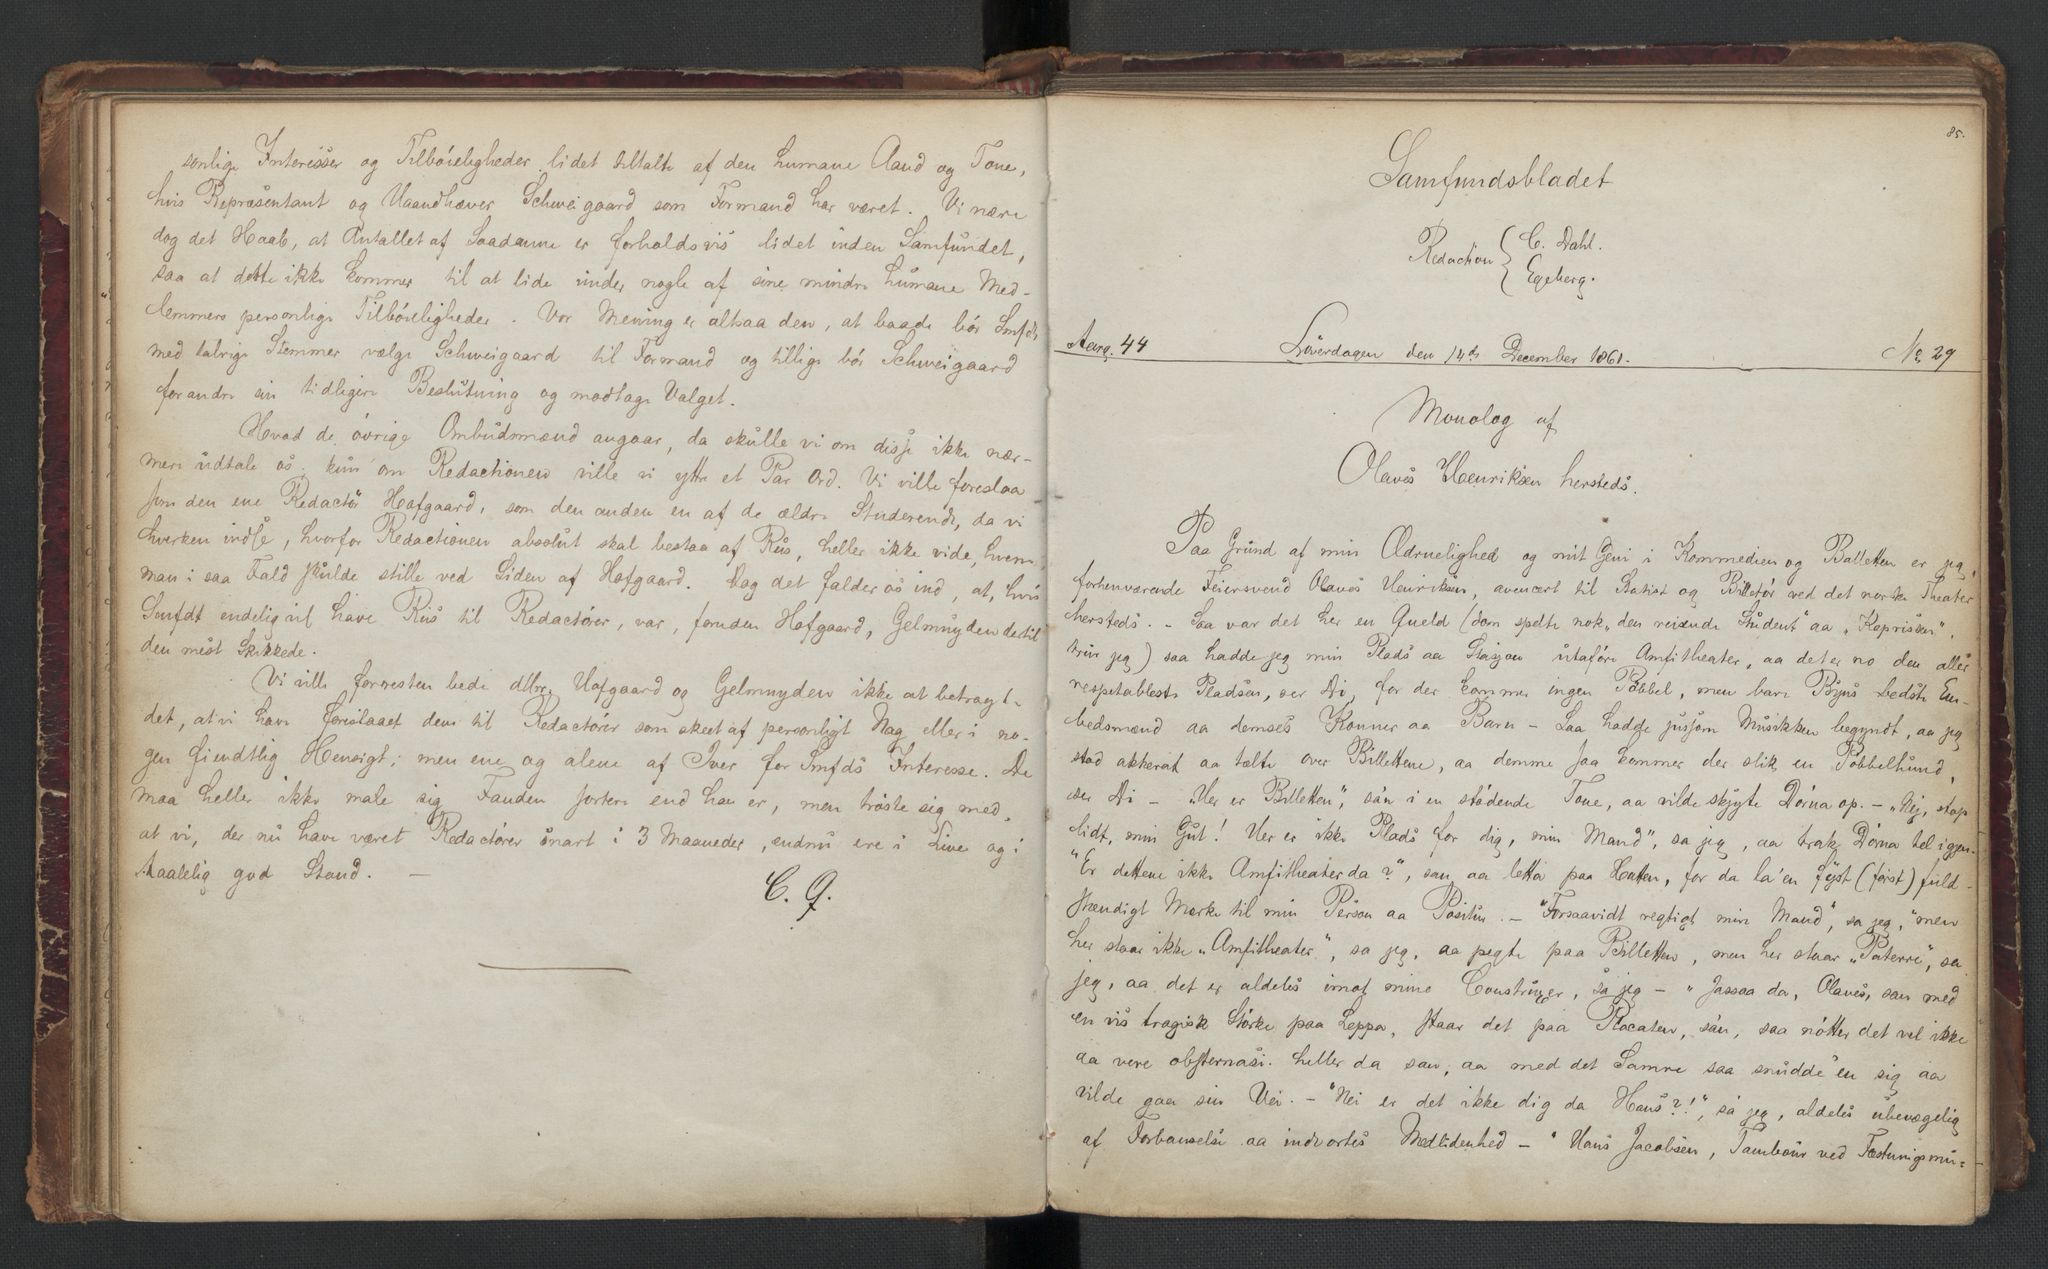 sonlige Interesser og Tilbøieligheder lidet tiltalte af den humane Aand og Tone,
hvis Repræsentant og Haandhæver Schweigaard som Formand har været. Vi nære
dog det Haab, at Antallet af Saadanne er forholdsvis lidet inden Samfundet,
saa at dette ikke kommer til at lide under nogle af sine mindre humane Med-
lemmers personlige Tilbøieligheder. Vor Mening er altsaa den, at baade bør Smfdt
med talrige Stemmer vælge Schweigaard til Formand og tillige bør Schweigaard
forandre sin tidligere Beslutning og modtage Valget.
Hvad de øvrige Ombudsmænd angaar, da skulle vi om disse ikke nær-
mere udtale os; kun om Redactionen ville vi yttre et Par Ord. Vi ville foreslaa
som den ene Redactør Hofgaard, som den anden en af de ældre Studerende, da vi
hverken indse, hvorfor Redactionen absolut skal bestaa af Rus, heller ikke vide, hvem
man i saa Fald skulde stille ved Siden af Hofgaard. Dog det falder os ind, at, hvis
Smfdt endelig vil have Rus til Redactører, var, foruden Hofgaard, Gelmuyden dertil
den mest Skikkede.
Vi ville forresten bede dHrr. Hofgaard og Gelmuyden ikke at betragt-
det, at vi have foreslaaet dem til Redactører som skeet af personligt Nag eller i no-
gen fiendtlig Hensigt; men ene og alene af Iver for Smfds Interesse. De
maa heller ikke male sig Fanden sortere end han er, men trøste sig med,
at vi, der nu have været Redactører snart i 3 Maaneder, endnu ere i Live og i
taalelig god Stand. —
85.
Samfundsbladet
Redaction { C. Dahl.
Egeberg.
Aarg. 44 Løverdagen den 14de December 1861. No 29
Monolog af
Olaves Henriksen hersteds.
Paa Grund af min Ædruelighed og mit Geni i Kommedien og Balletten er jeg,
forhenværende Feiersvend Olaves Henriksen, avencert til Statist og Billetør ved det norske Theater
hersteds. – Saa var det her en Queld (dom spelte nok „den reisende Student" aa „Kaprisen",
trur jeg) saa hadde jeg min Plads aa Stasjon utaføre Amfitheater, aa det er no den aller
respetableste Pladsen, ser Di, for der kommer ingen Pøbbel, men bare Byns bedste Em-
bedsmænd aa demses Konner aa Barn – Saa hadde jussom Musikken begyndt, aa jeg
stod akkerat aa tælte over Billettene, aa demme saa kommer der slik en Pøbbelhund,
ser Di – „Her er Billetten", sa'n i en stødende Tone, aa vilde skjyte Dørna op. – „Nei, stop
lidt, min Gut! Her er ikke Plads for dig, min Mand", sa jeg, aa trak Dørna tel igjen.
"Er dettene ikke Amfitheater da?", sa'n, aa letta paa Hatten, for da la'en fyst (først) fuld-
stændigt Mærke til min Person aa Positur. – "Forsaavidt regtigt min Mand", sa jeg, "men
her staar ikke „Amfitheater", sa jeg, aa pegte paa Billetten, men her staar „Paterre", sa
jeg, aa det er aldeles imot mine Construxer, sa jeg – " Jassaa da, Olaves, sa'n med
en vis tragisk Størke paa Leppa, staar det paa Placaten, sa'n, saa nøtter det vel ikke
aa vere obsternasi. heller da sa'n, aa med det Samme saa snudde en sig aa
vilde gaa sin Vei. – "Nei er det ikke dig da Hans?!", sa jeg, aldeles ubevægelig
af Forbauselse aa indvortes Medlidenhed – " Hans Jacobsen, Tambour ved Fæstningsmu-